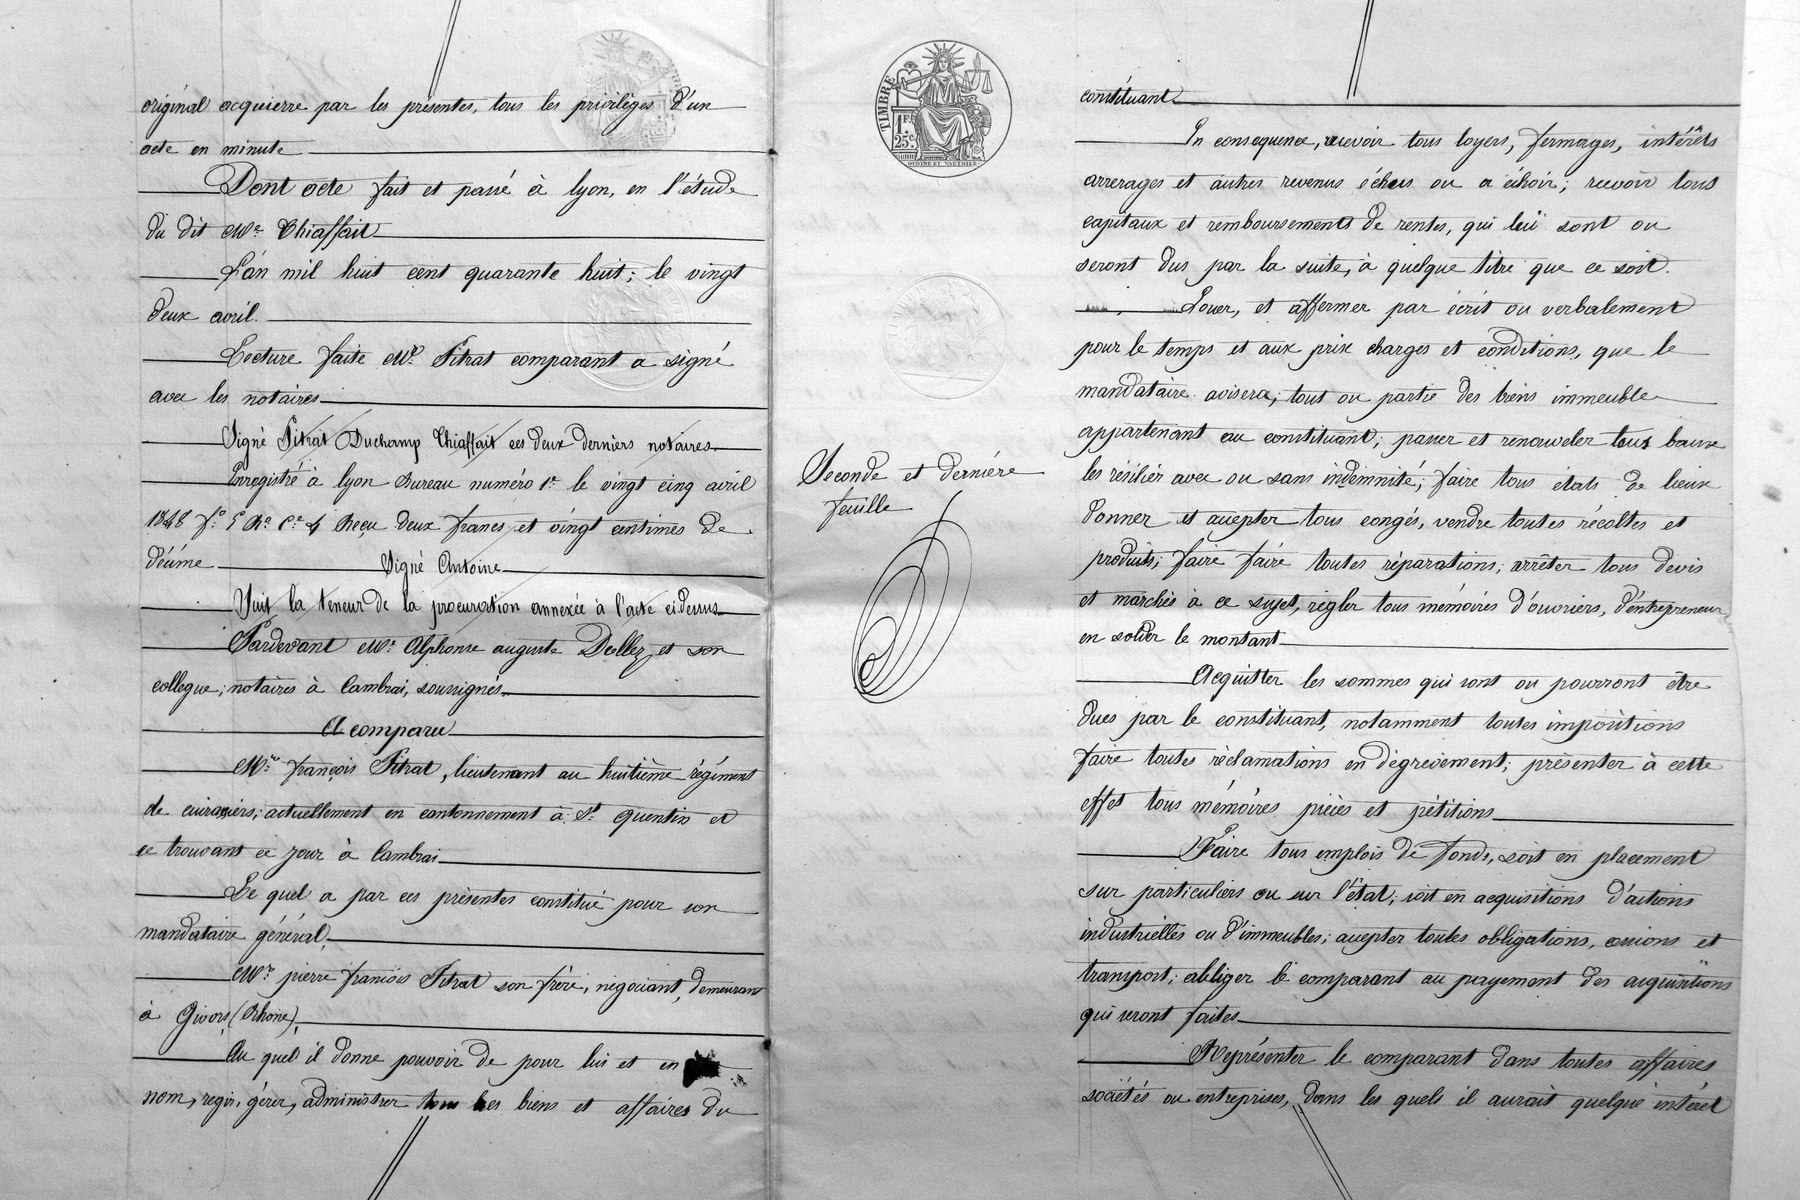 original acquierre par les présentes, tous les privilèges d'un
acte en minute
Dont acte fait et passé à lyon, en l'étude
du dit Me. Chiaffait
L'an mil huit cent quarante huit; le vingt
deux avril.
Lecture faite Mr. Pitrat comparant a signé
avec les notaires
Signé Pitrat Duchamp Chiaffait ces deux derniers notaires
Enregistré à lyon Bureau numéro 1er le vingt cinq avril
1848 fo. Ro. Ce. 4 Reçu deux francs et vingt centimes de
décime Signé Antoine
Suit la teneur de la procuration annexée à l'acte ci dessus
Pardevant Me. Alphonse auguste Dollez et son
collegue; notaires à Cambrai, soussignés
A comparu
Mr. françois Pitrat, lieutenant au huitième régiment
de cuirassiers; actuellement en cantonnement à St. quentin et
se trouvant ce jour à Cambrai
Le quel a par ces présentes constitué pour son
mandataire général,
Mr. pierre françois Pitrat son frère, négociant, demeurant
à Givors (Rhône),
Au quel il donne pouvoir de pour lui et en
nom, regir, gérer, administrer tous les biens et affaires du
TIMBRE
1F
25c.
OUDINE ET VAUTHIER
Seconde et dernière
feuille
constituant
En consequence, recevoir tous loyers, fermages, intérêts
arrerages et autres revenus échus ou a échoir; recevoir tous
capitaux et remboursements de rentes, qui lui sont ou
seront dus par la suite, à quelque titre que ce soit.
Louer, et affermer par écrit ou verbalement
pour le temps et aux prix charges et conditions, que le
mandataire avisera; tout ou partie des biens immeuble
appartenant au constituant; passer et renouveler tous baux
les résilier avec ou sans indemnité; faire tous états de lieux
donner et accepter tous congés, vendre toutes récoltes et
produits; faire faire toutes réparations; arrêter tous devis
et marchés à ce sujet, régler tous mémoires d'ouvriers, d'entrepreneur
en solder le montant
Acquitter les sommes qui sont ou pourront être
dues par le constituant, notamment toutes impositions
faire toutes réclamations en dégrèvement; présenter à cette
effet tous mémoires pièces et pétitions
Faire tous emplois de fonds, soit en placement
sur particuliers ou sur l'état; soit en acquisitions d'actions
industrielles ou d'immeubles; accepter toutes obligations, cessions et
transport; obliger le comparant au payement des acquisitions
qui seront faites
Représenter le comparant dans toutes affaires
sociétés ou entreprises, dans les quels il aurait quelque intérêt